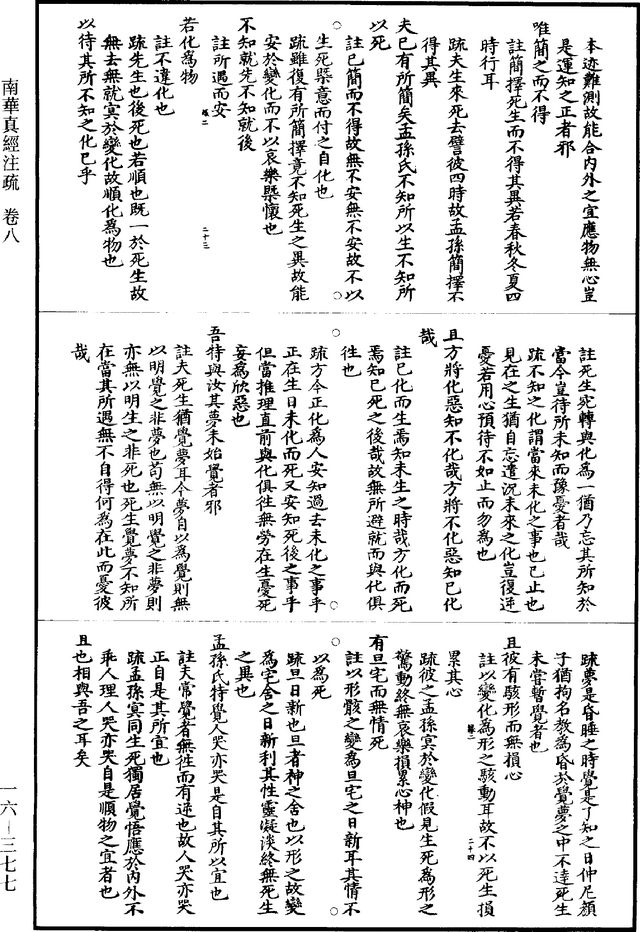 本迹難測故能合內外之宜應物無心豈
是運知之正者邪
唯簡之而不得
註簡擇死生而不得其異若春秋冬夏四
時行耳
疏夫生來死去譬彼四時故孟孫簡擇不
得其異
夫已有所簡矣孟孫氏不知所以生不知所
以死
註已簡而不得故無不安無不安故不以
生死槩意而付之自化也
疏雖復有所簡擇竟不知死生之異故能
安於變化而不以哀樂槩懷也
不知就先不知就後
註所遇而安
若化為物
註不違化也
疏先生也後死也若順也既一於死生故
無去無就冥於變化故順化為物也
以待其所不知之化已乎
註死生宛轉與化為一猶乃忘其所知於
當今豈待所未知而豫憂者哉
疏不知之化謂當來未化之事也已止也
見在之生猶自忘遣況未來之化豈復逆
憂若用心預待不如止而勿為也
且方將化惡知不化哉方將不化惡知已化
哉
註已化而生焉知未生之時哉方化而死
焉知已死之後哉故無所避就而與化俱
往也
疏方今正化為人安知過去未化之事乎
正在生日未化而死又安知死後之事乎
但當推理直前與化俱往無勞在生憂死
妄為欣惡也
吾特與汝其夢未始覺者邪
註夫死生猶覺夢耳今夢自以為覺則無
以明覺之非夢也苟無以明覺之非夢則
亦無以明生之非死也死生覺夢不知所
在當其所遇無不自得何為在此而憂彼
哉
疏夢是昏睡之時覺是了知之日仲尼顏
子猶拘名教為昏於覺夢之中不達死生
未嘗暫覺者也
且彼有駭形而無損心
註以變化為形之駭動耳故不以死生損
累其心
疏彼之孟孫冥於變化假見生死為形之
驚動終無哀樂損累心神也
有旦宅而無情死
註以形骸之變為旦宅之日新耳其情不
以為死
疏旦日新也旦者神之舍也以形之故變
為宅舍之日新利其性靈凝淡終無死生
之異也
孟孫氏特覺人哭亦哭是自其所以宜也
註夫常覺者無往而有逆也故人哭亦哭
正自是其所宜也
疏孟孫冥同生死獨居覺悟應於內外不
乖人理人哭亦哭自是順物之宜者也
且也相與吾之耳矣
南華真經注疏　卷八
一六—三七七